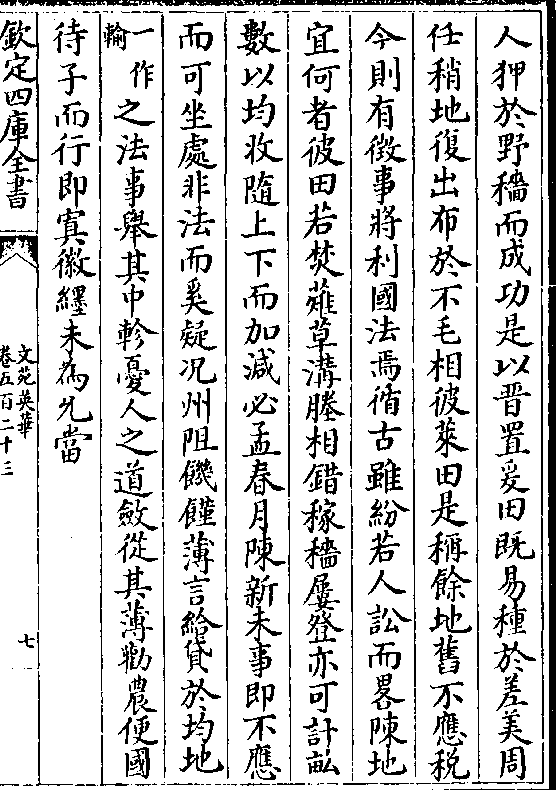 人狎於野穡而成功是以晋置爰田既易種於差美周
任稍地復出布於不毛相彼萊田是稱餘地舊不應税
今則有徴事將利國法焉循古雖紛若人訟而畧陳地
宜何者彼田若焚薙草溝塍相錯稼穡屢登亦可計畝
數以均收隨上下而加減必孟春月陳新未事即不應
而可坐處非法而奚疑况州阻饑饉薄言給貸於均地
一作輸之法事舉其中軫憂人之道斂從其薄勸農便國
待子而行即寘徽纆未為允當
欽定四庫全書
文苑英華
卷五百二十三
七